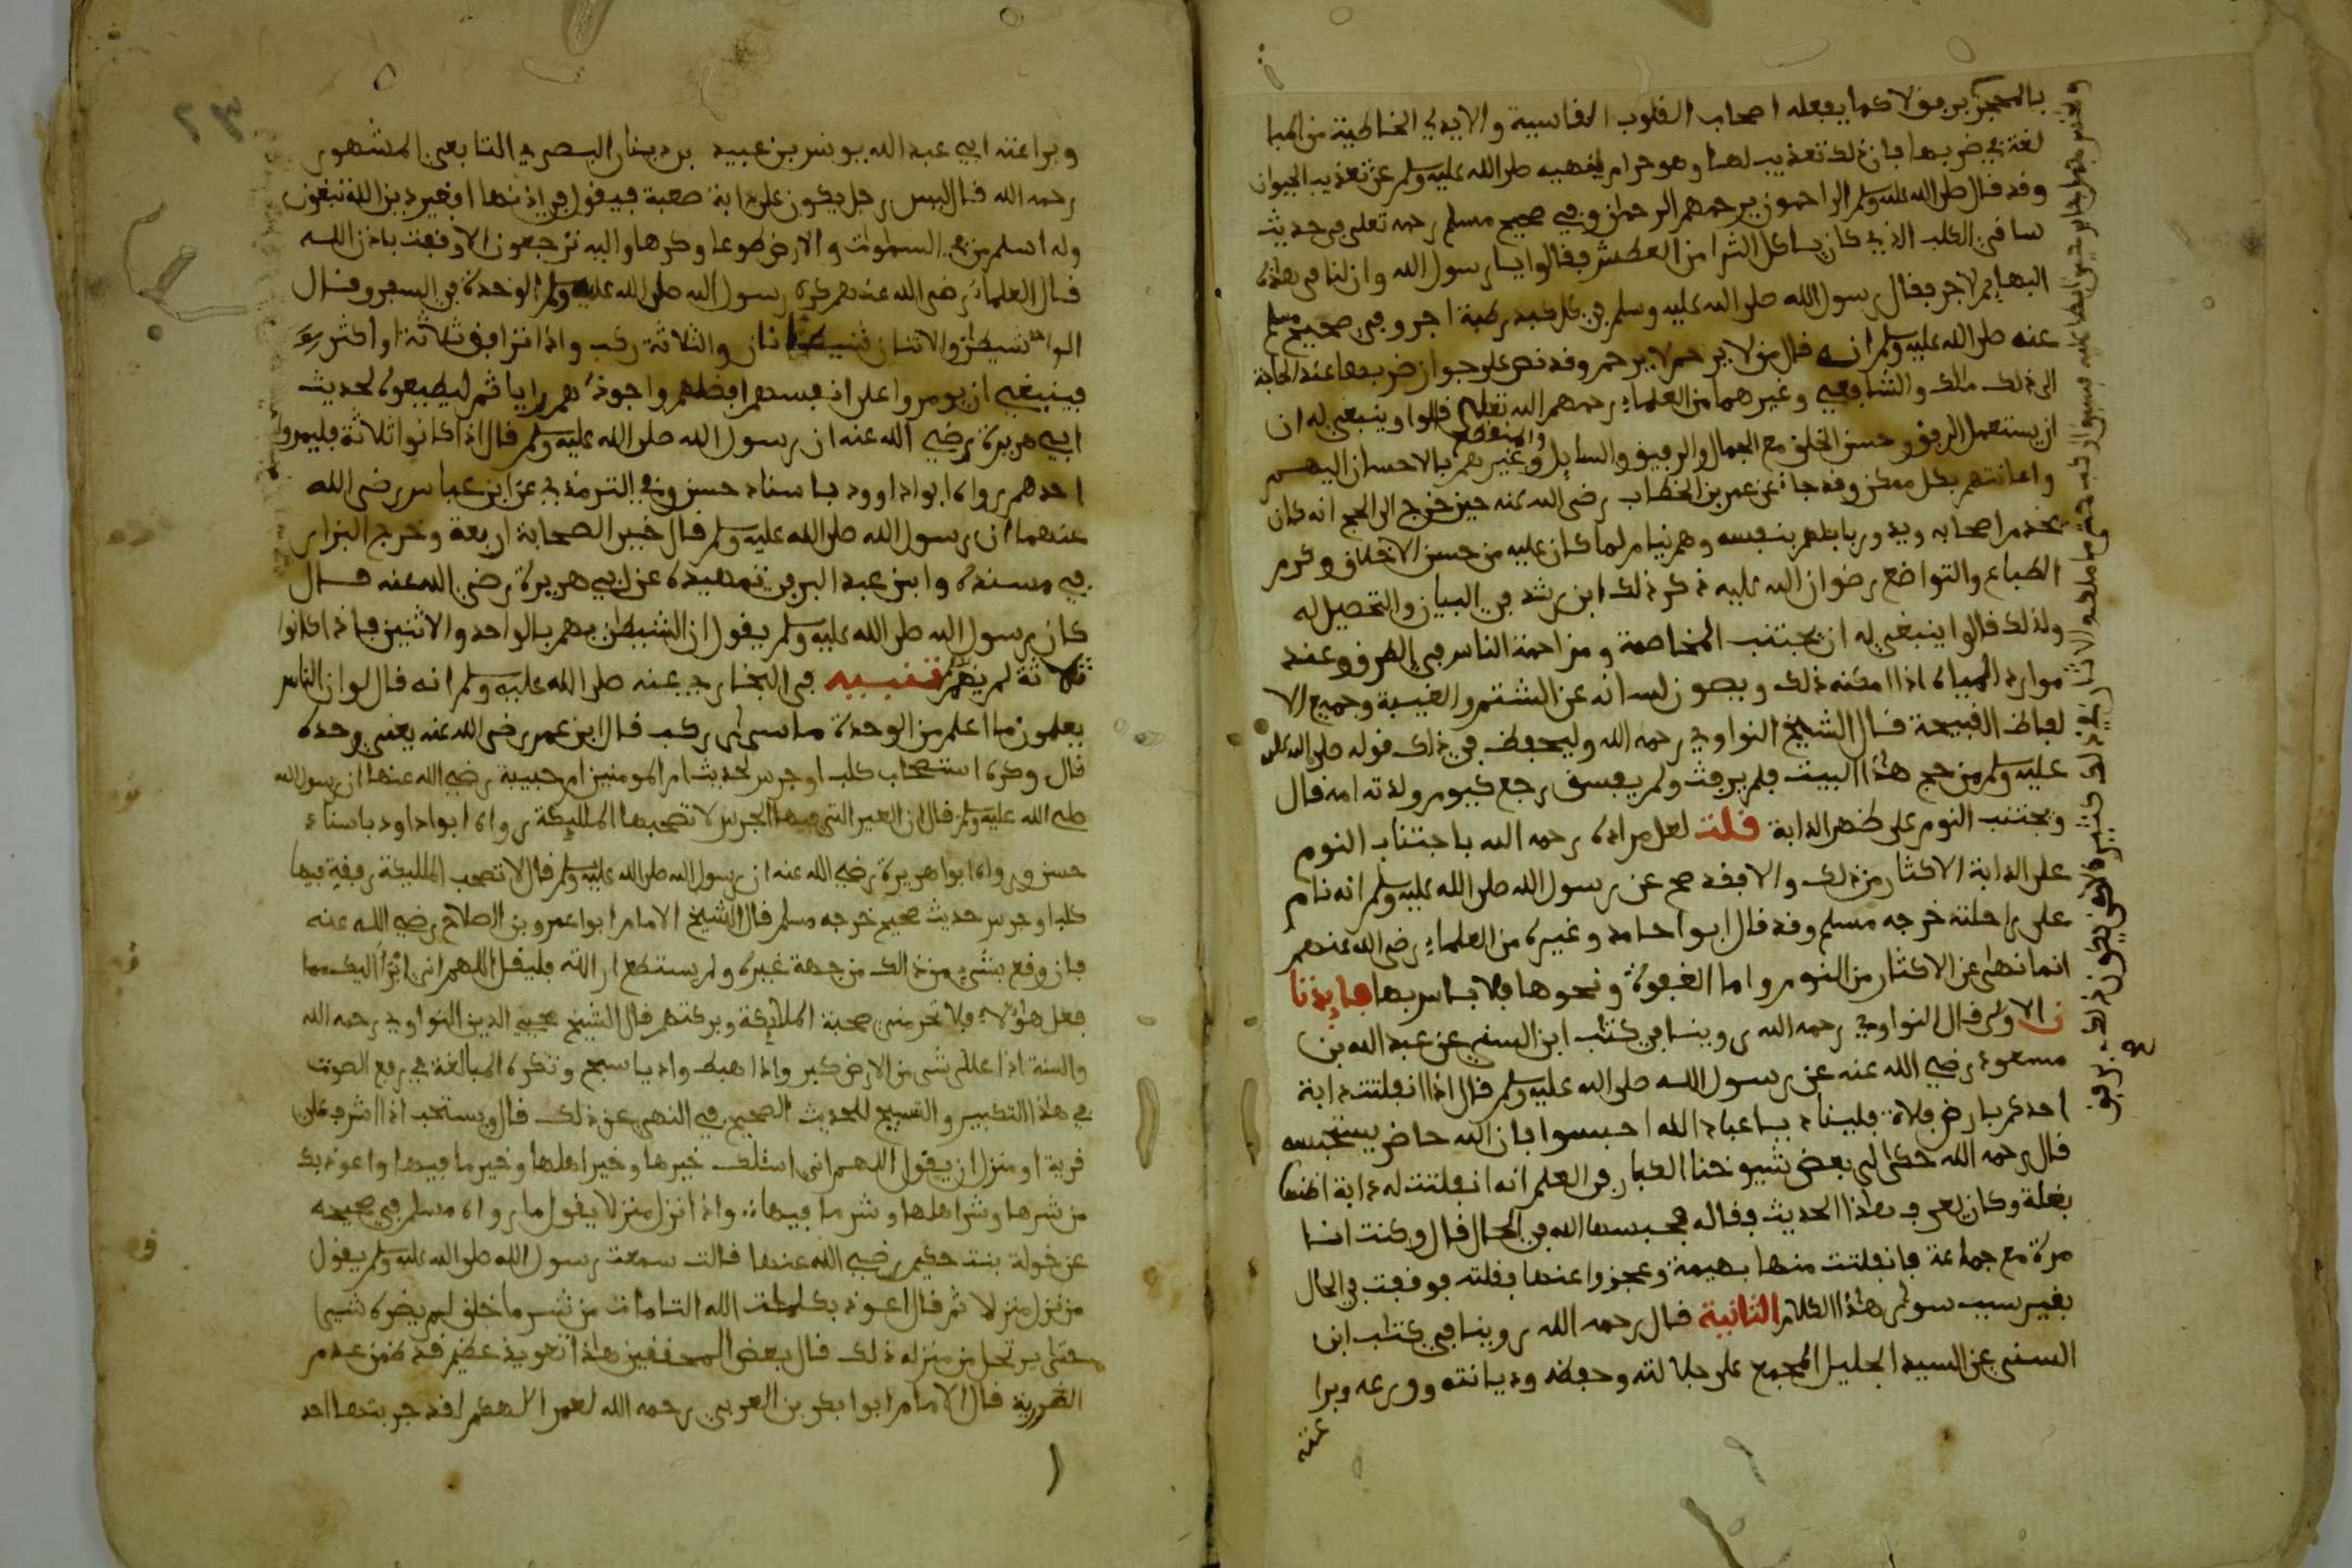 بالمحجن برفق لا كما يفعله اصحاب القلوب القاسية والايدي الخاطية من المبا
لغة في ضربها فان ذلك تعذيب لها وهو حرام لنهيه صلى الله عليه وسلم عن تعذيب الحيوان
وقد قال صلى الله عليه وسلم الراحمون يرحمهم الرحمان وفي صحيح مسلم رحمه تعلى في حديث
ساقي الكلب الذي كان ياكل الثرا من العطش فقالوا يا رسول الله وان لنا في هذه
البهايم لاجر فقال رسول الله صلى الله عليه وسلم في كل كبد رطبة اجر وفي صحيح مسلم
عنه صلى الله عليه وسلم انه قال من لا يرحم لا يرحم وقد نص على جواز ضربها عند الحاجة
الى ذلك مالك والشافعي وغيرهما من العلماء رحمهم الله تعلى قالوا وينبغي له ان
ان يستعمل الرفق وحسن الخلق مع الجمال والرفيق والسايل والمنقطع وغيرهم بالاحسان اليهم
واعانتهم بكل ممكن وقد جاء عن عمر بن الخطاب رضي الله عنه حين خرج الى الحج انه كان
يخدم اصحابه ويدور بابلهم بنفسه وهم نيام لما كان عليه من حسن الاخلاق وكرم
الطباع والتواضع رضوان الله عليه ذكر ذلك ابن رشد في البيان والتحصيل له
ولذلك قالوا ينبغي له ان يجتنب المخاصمة ومزاحمة الناس في الطرق وعند
موارد المياه اذا امكنه ذلك ويصون لسانه عن الشتم والغيبة وجميع الا
لفاظ القبيحة قال الشيخ النواوي رحمه الله وليحفظ في ذلك قوله صلى الله علي
عليه وسلم من حج هذا البيت فلم يرفث ولم يفسق رجع كيوم ولدته امه قال
ويجتنب النوم على ظهر الدابة قلت لعل مراده رحمه الله باجتناب النوم
على الدابة الاكثار من ذلك والا فقد صح عن رسول الله صلى الله عليه وسلم انه نام
على راحلته خرجه مسلم وقد قال ابوا حامد وغيره من العلماء رضي الله عنهم
انما نهى عن الاكثار من النوم واما الغفوة ونحوها فلا باس بها فايدتا
ن الاولى قال النواوي رحمه الله روينا في كتاب ابن السني عن عبد الله بن
مسعود رضي الله عنه عن رسول الله صلى الله عليه وسلم قال اذا انفلتت دابة
احدكم بارض فلاة فليناد يا عباد الله احبسوا فان لله حاضر يستحبسه
قال رحمه الله حكى لي بعض شيوخنا الكبار في العلم انه انفلتت له دابة اظنها
بغلة وكان يعرف هذا الحديث فقاله فحبسها الله في الحال قال وكنت انا
مرة مع جماعة فانفلتت منها بهيمة وعجزوا عنها فقلته فوقفت في الحال
بغير سبب سوى هذا الكلام الثانية قال رحمه الله روينا في كتاب ابن
السني عن السيد الجليل المجمع على جلالته وحفظه وديانته وورعه وبرا
عته
وبراعته ابي عبد الله يونس بن عبيد بن دينار البصري التابعي المشهور
رحمه الله قال ليس رجل يكون على دابة صعبة فيقول في اذنها افغير دين الله تبغون
وله اسلم من في السموات والارض طوعا وكرها واليه ترجعون الا وقفت باذن الله
قال العلماء رضي الله عنهم كره رسول الله صلى الله عليه وسلم الوحدة في السفر وقال
الواحد شيطن والاثنان شيطانان والثلاثة ركب واذا ترافق ثلاثة او اكثر
فينبغي ان يومروا على انفسهم افضلهم واجودهم رايا ثم ليطيعوه لحديث
ابي هريرة رضي الله عنه ان رسول الله صلى الله عليه وسلم قال اذا كانوا ثلاثة فليمروا
احدهم رواه ابوا داوود باسناد حسن وفي الترمذي عن ابن عباس رضي الله
عنهما ان رسول الله صلى الله عليه وسلم قال خير الصحابة اربعة وخرج البزار
في مسنده وابن عبد البر في تمهيده عن ابي هريرة رضي الله عنه قال
كان رسول الله صلى الله عليه وسلم يقول ان الشيطن يهم بالواحد والاثنين فاذا كانوا
ثلاثة لم يهم تنبيه في البخاري عنه صلى الله عليه وسلم انه قال لو ان الناس
يعلمون ما اعلم من الوحدة ما سرى ركب قال ابن عمر رضي الله عنه يعني وحده
قال وكره استصحاب كلب او جرس لحديث ام المومنين ام حبيبة رضي الله عنها ان رسول الله
صلى الله عليه وسلم قال ان العير التي فيها الجرس لا تصحبها المليكة رواه ابوا داود باسناد
حسن ورواه ابوا هريرة رضي الله عنه ان رسول الله صلى الله عليه وسلم قال لا تصحب المليكة رفقة فيها
كلب او جرس حديث صحيح خرجه مسلم قال الشيخ الامام ابوا عمرو بن الصلاح رضي الله عنه
فان وقع بشيء من ذالك من جهة غيره ولم يستطع ازالته فليقل اللهم اني ابرأ اليك مما
فعل هؤلاء فلا تحرمني صحبة الملايكة وبركتهم قال الشيخ محيي الدين النواوي رحمه الله
والسنة اذا علا على شي من الارض كبر واذا هبط واديا سبح وتكره المبالغة في رفع الصوت
في هذا التكبير والتسبيح للحديث الصحيح في النهي عن ذلك قال ويستحب اذا اشرف على
قرية او منزل ان يقول اللهم اني اسئلك خيرها وخير اهلها وخير ما فيها واعوذ بك
من شرها وشر اهلها وشر ما فيها واذا نزل منزلا يقول ما رواه مسلم في صحيحه
عن خولة بنت حكيم رضي الله عنها قالت سمعت رسول الله صلى الله عليه وسلم يقول
من نزل منزلا ثم قال اعوذ بكلمات الله التامات من شر ما خلق لم يضره شيء
حتى يرتحل من منزله ذلك قال بعض المحققين هذا تعويذ عظيم قد ضمن عدم
الضررية قال الامام ابوا بكر بن العربي رحمه الله لعمر الله لقد جربتها احد